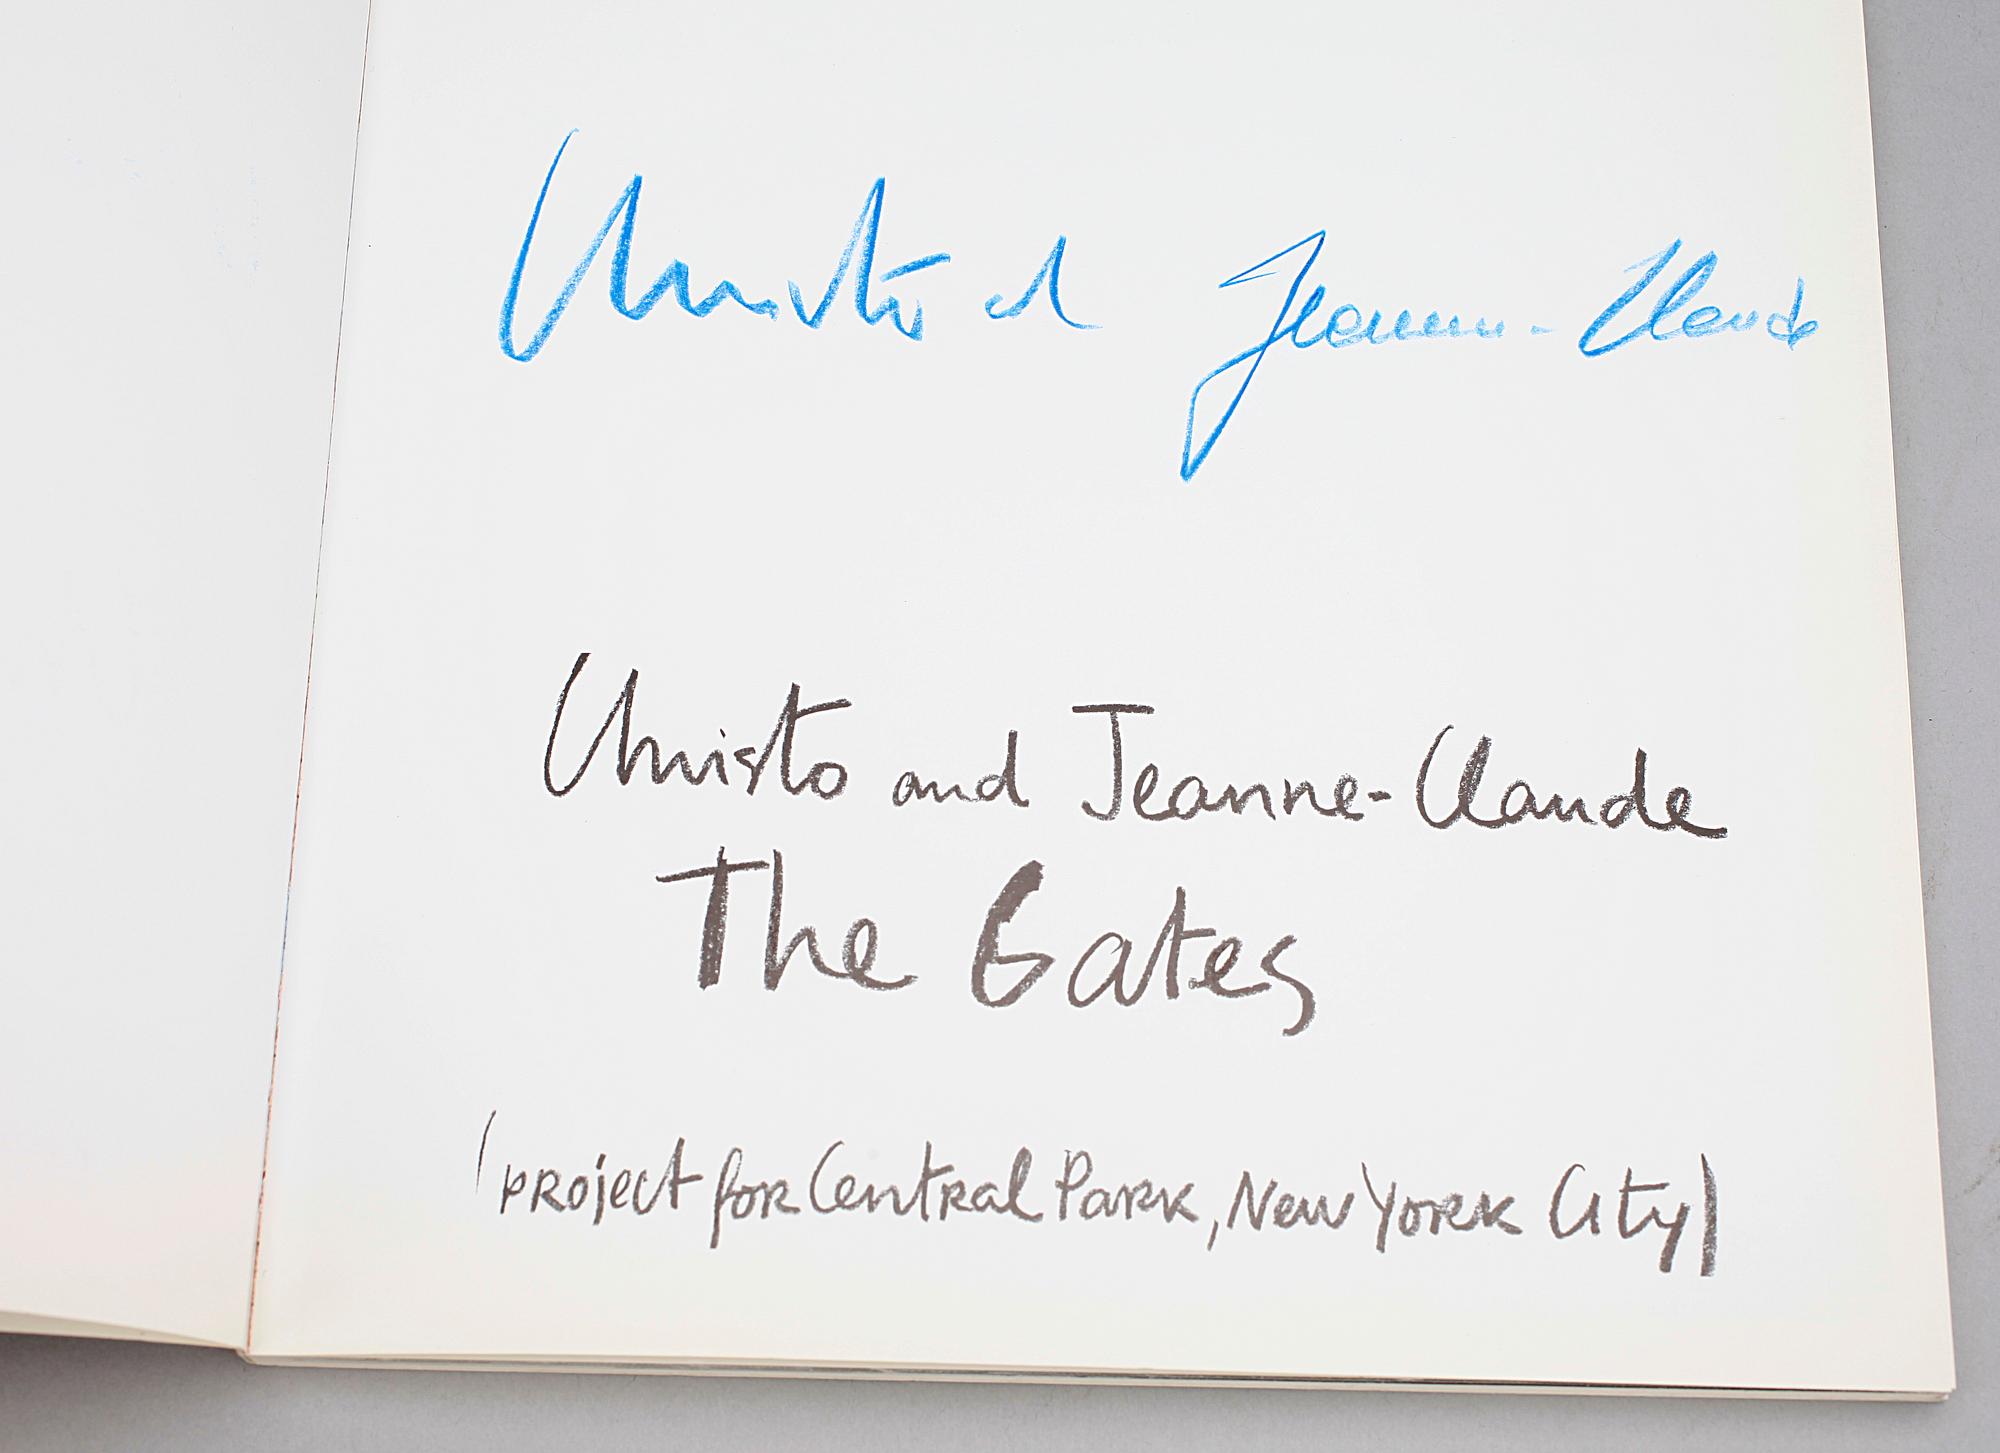 Christo et Jeanne-Claude
Christo and Jeanne-Claude
The Gates
(PROJECT FOR CENTRAL PARK, NEW YORK CITY)